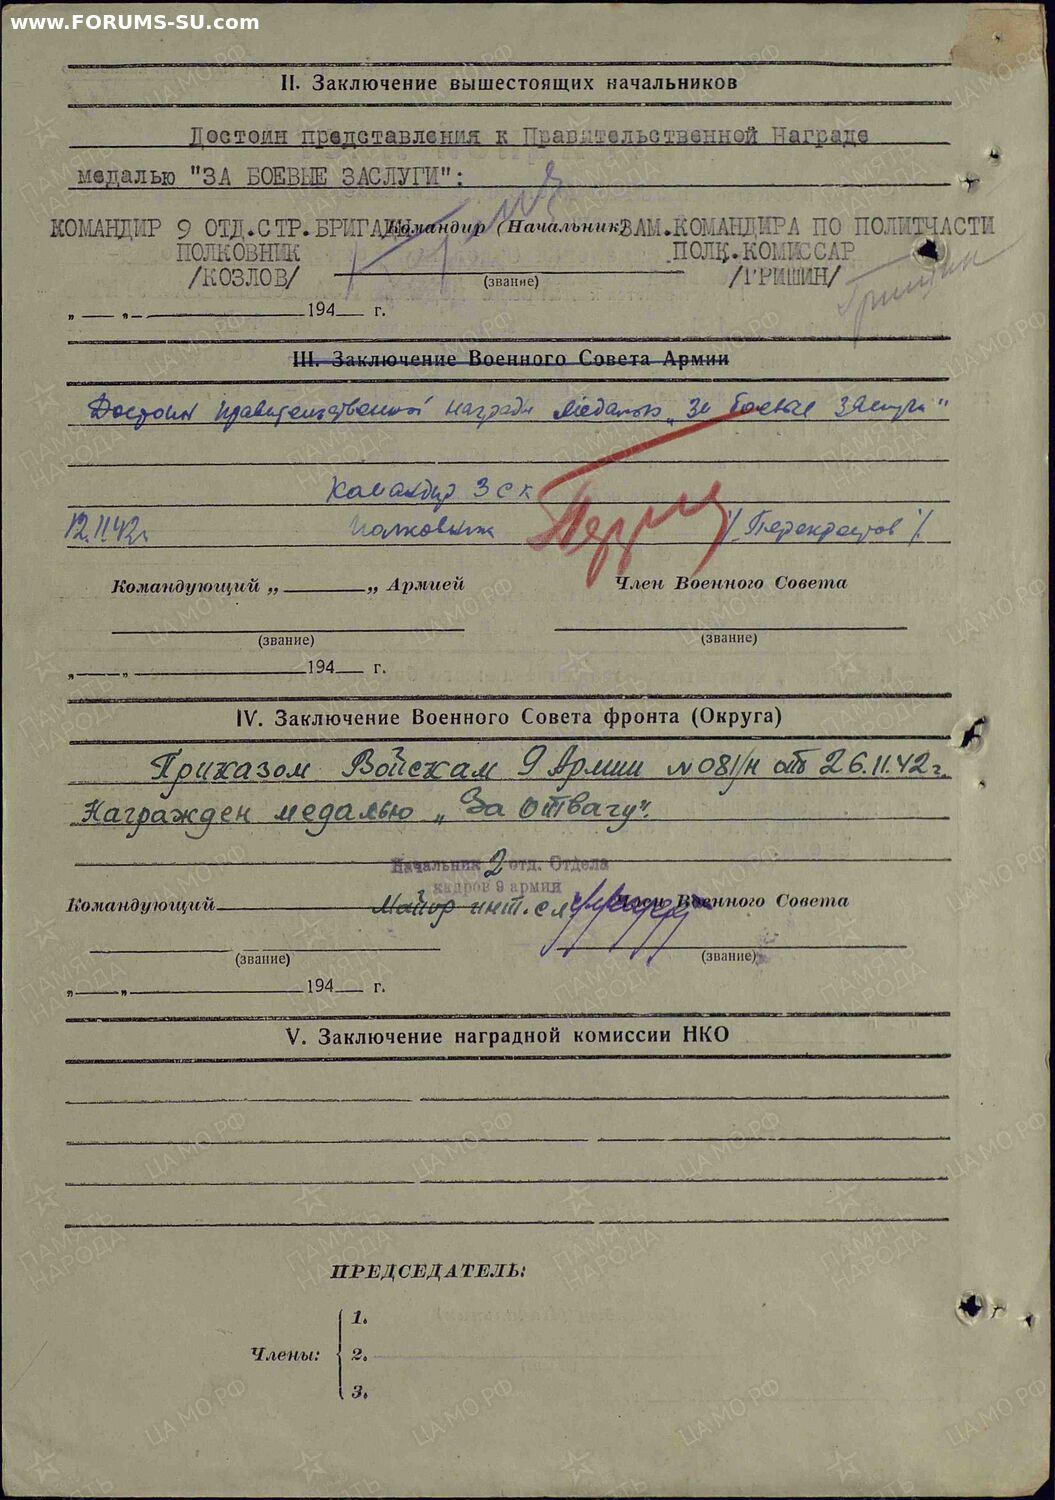 www.FORUMS-SU.com
II. Заключение вышестоящих начальников
Достоин представления к Правительственной Награде
медалью "ЗА БОЕВЫЕ ЗАСЛУГИ":
КОМАНДИР 9 ОТД.СТР.БРИГАДЫ Командир (Начальник) ЗАМ.КОМАНДИРА ПО ПОЛИТЧАСТИ
ПОЛКОВНИК ПОЛК.КОМИССАР
/КОЗЛОВ/ (звание) /ГРИШИН/
Гришин
„ — „ — 194 г.
III. Заключение Военного Совета Армии
Достоин правительственной награды медалью „За боевые заслуги"
Командир 3 с к
12.11.42г. полковник /Перекрестов/
Командующий „ „ Армией Член Военного Совета
(звание) (звание)
„ „ 194 г.
IV. Заключение Военного Совета фронта (Округа)
Приказом Войскам 9 Армии № 081/н от 26.11.42г.
Награжден медалью „За отвагу".
Начальник 2 отд. Отдела
кадров 9 армии
Командующий Майор инт. сл Член Военного Совета
(звание) (звание)
„ „ 194 г.
V. Заключение наградной комиссии НКО
ПРЕДСЕДАТЕЛЬ:
1.
Члены: 2.
3.
ПАМЯТЬ НАРОДА
ЦА МО РФ